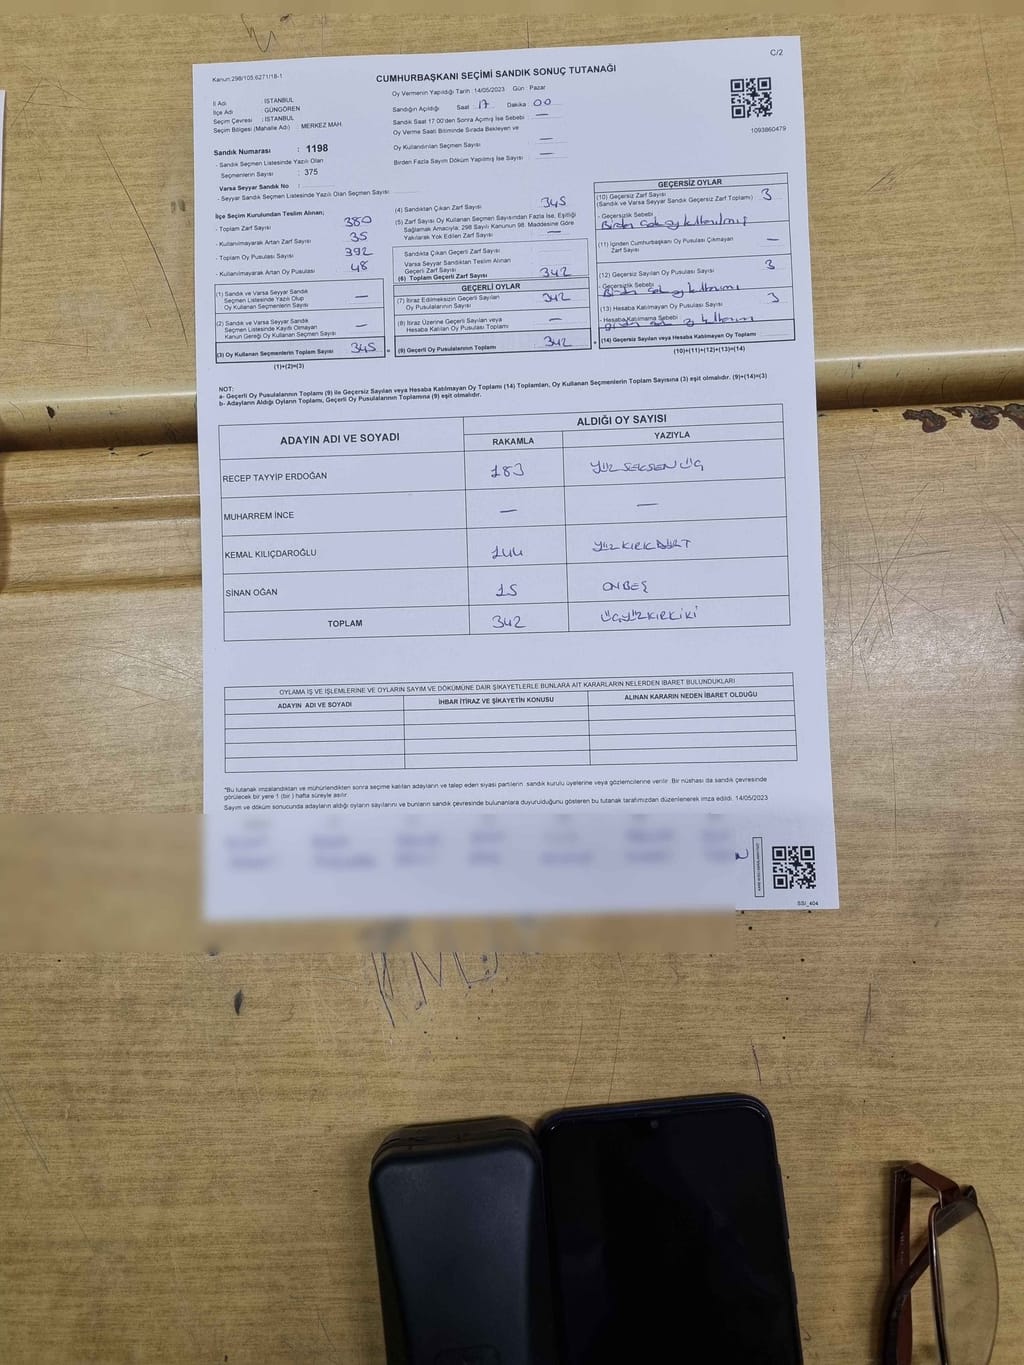 C/2
Kanun.298/105.6271/18-1
CUMHURBAŞKANI SEÇİMİ SANDIK SONUÇ TUTANAĞI
İl Adı : İSTANBUL
İlçe Adı : GÜNGÖREN
Seçim Çevresi : İSTANBUL
Seçim Bölgesi (Mahalle Adı) : MERKEZ MAH.
Sandık Numarası : 1198
- Sandık Seçmen Listesinde Yazılı Olan
Seçmenlerin Sayısı : 375
Varsa Seyyar Sandık No :
- Seyyar Sandık Seçmen Listesinde Yazılı Olan Seçmen Sayısı
Oy Vermenin Yapıldığı Tarih : 14/05/2023 Gün : Pazar
Sandığın Açıldığı Saat : 17 Dakika : 00
Sandık Saat 17.00'den Sonra Açımış İse Sebebi : —
Oy Verme Saati Bitiminde Sırada Bekleyen ve
Oy Kullandırılan Seçmen Sayısı —
Birden Fazla Sayım Döküm Yapılmış İse Sayısı —
1093860479
İlçe Seçim Kurulundan Teslim Alınan;
- Toplam Zarf Sayısı 380
- Kullanılmayarak Artan Zarf Sayısı 35
- Toplam Oy Pusulası Sayısı 392
- Kullanılmayarak Artan Oy Pusulası 48
(1) Sandık ve Varsa Seyyar Sandık
Seçmen Listesinde Yazılı Olup
Oy Kullanan Seçmenlerin Sayısı —
(2) Sandık ve Varsa Seyyar Sandık
Seçmen Listesinde Kayıtlı Olmayan
Kanun Gereği Oy Kullanan Seçmen Sayısı —
(3) Oy Kullanan Seçmenlerin Toplam Sayısı 345
(1)+(2)=(3)
(4) Sandıktan Çıkan Zarf Sayısı 345
(5) Zarf Sayısı Oy Kullanan Seçmen Sayısından Fazla İse, Eşitliği
Sağlamak Amacıyla; 298 Sayılı Kanunun 98. Maddesine Göre
Yakılarak Yok Edilen Zarf Sayısı —
Sandıkta Çıkan Geçerli Zarf Sayısı
Varsa Seyyar Sandıktan Teslim Alınan
Geçerli Zarf Sayısı
(6) Toplam Geçerli Zarf Sayısı 342
GEÇERLİ OYLAR
(7) İtiraz Edilmeksizin Geçerli Sayılan
Oy Pusulalarının Sayısı 342
(8) İtiraz Üzerine Geçerli Sayılan veya
Hesaba Katılan Oy Pusulası Toplamı —
(9) Geçerli Oy Pusulalarının Toplamı 342
GEÇERSİZ OYLAR
(10) Geçersiz Zarf Sayısı
(Sandık ve Varsa Seyyar Sandık Geçersiz Zarf Toplamı) 3
- Geçersizlik Sebebi
Birden
(11) İçinden Cumhurbaşkanı Oy Pusulası Çıkmayan
Zarf Sayısı —
(12) Geçersiz Sayılan Oy Pusulası Sayısı 3
- Geçersizlik Sebebi
(13) Hesaba Katılmayan Oy Pusulası Sayısı 3
- Hesaba Katılmama Sebebi :
(14) Geçersiz Sayılan veya Hesaba Katılmayan Oy Toplamı
(10)+(11)+(12)+(13)=(14)
NOT:
a- Geçerli Oy Pusulalarının Toplamı (9) ile Geçersiz Sayılan veya Hesaba Katılmayan Oy Toplamı (14) Toplamları, Oy Kullanan Seçmenlerin Toplam Sayısına (3) eşit olmalıdır. (9)+(14)=(3)
b- Adayların Aldığı Oyların Toplamı, Geçerli Oy Pusulalarının Toplamına (9) eşit olmalıdır.
ADAYIN ADI VE SOYADI
ALDIĞI OY SAYISI
RAKAMLA YAZIYLA
RECEP TAYYİP ERDOĞAN 183 YÜZ SEKSEN ÜÇ
MUHARREM İNCE — —
KEMAL KILIÇDAROĞLU 144 YÜZ KIRK DÖRT
SİNAN OĞAN 15 ONBEŞ
TOPLAM 342 ÜÇYÜZKIRKİKİ
OYLAMA İŞ VE İŞLEMLERİNE VE OYLARIN SAYIM VE DÖKÜMÜNE DAİR ŞİKAYETLERLE BUNLARA AİT KARARLARIN NELERDEN İBARET BULUNDUKLARI
ADAYIN ADI VE SOYADI İHBAR İTİRAZ VE ŞİKAYETİN KONUSU ALINAN KARARIN NEDEN İBARET OLDUĞU
*Bu tutanak imzalandıktan ve mühürlendikten sonra seçime katılan adayların ve talep eden siyasi partilerin sandık kurulu üyelerine veya gözlemcilerine verilir. Bir nüshası da sandık çevresinde
görülecek bir yere 1 (bir ) hafta süreyle asılır.
Sayım ve döküm sonucunda adayların aldığı oyların sayılarını ve bunların sandık çevresinde bulunanlara duyurulduğunu gösteren bu tutanak tarafımızdan düzenlenerek imza edildi. 14/05/2023
SSI_404